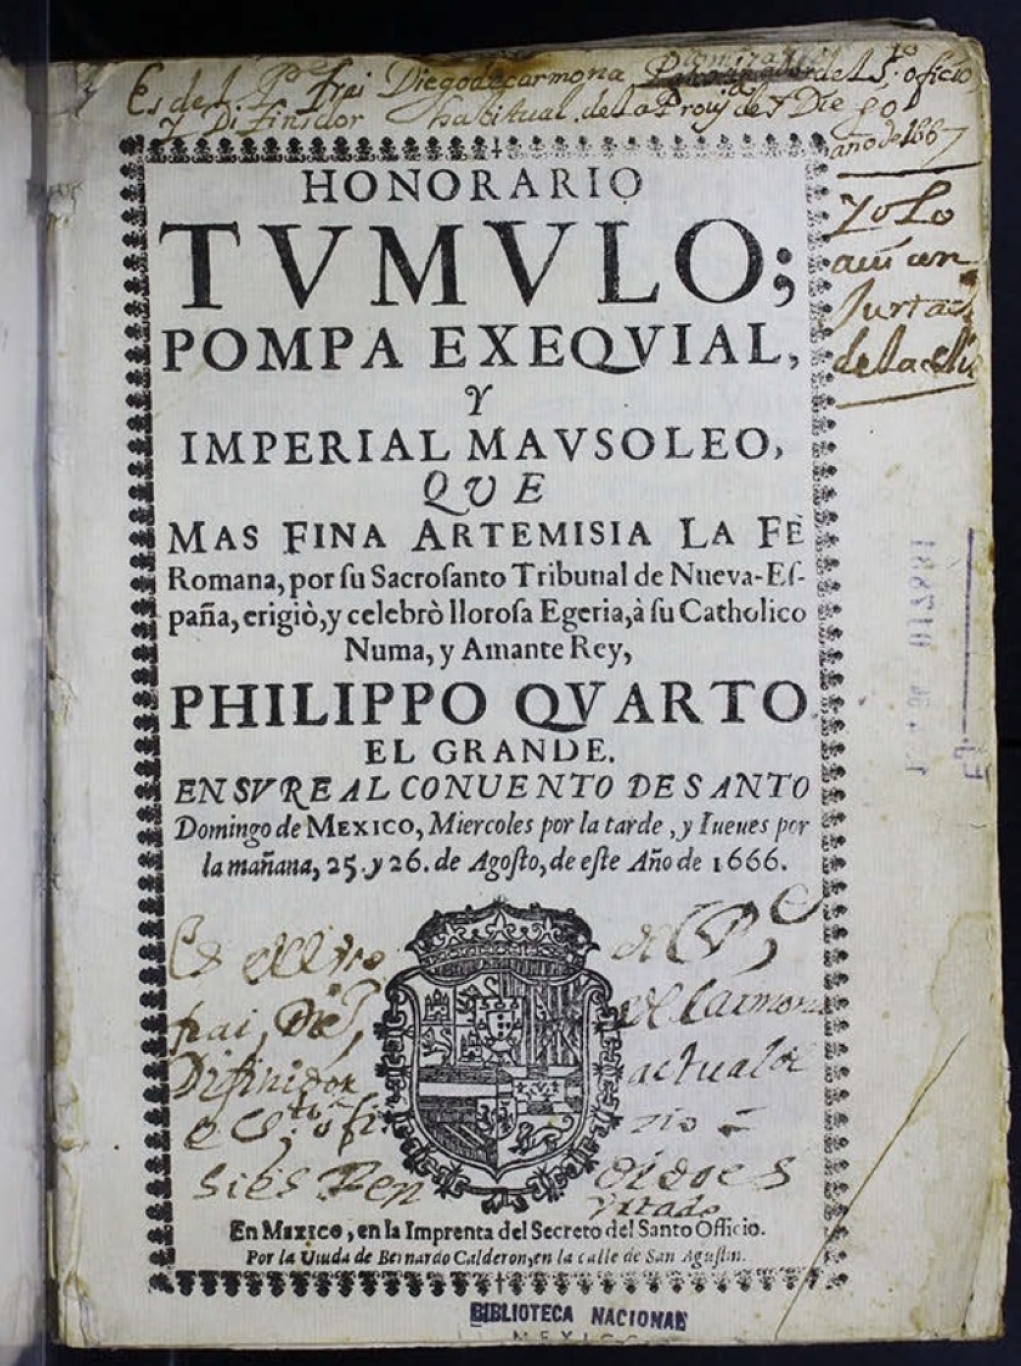 Es del P.e frai Diego de carmona del S.to oficio
y Difinidor habitual de la Prov.a de S Diego
año de 1667
HONORARIO
TVMVLO;
POMPA EXEQVIAL,
Y
IMPERIAL MAVSOLEO,
QVE
MAS FINA ARTEMISIA LA FÈ
Romana, por ſu Sacroſanto Tribunal de Nueva-Eſ-
paña, erigiò, y celebrò lloroſa Egeria, à ſu Catholico
Numa, y Amante Rey,
PHILIPPO QVARTO
EL GRANDE.
EN SV REAL CONUENTO DE SANTO
Domingo de MEXICO, Miercoles por la tarde, y Iueues por
la mañana, 25. y 26. de Agoſto, de eſte Año de 1666.
de la
de P.e
frai de Carmona
Difinidor actual
En MEXICO, en la Imprenta del Secreto del Santo Officio.
Por la Viuda de Bernardo Calderon, en la calle de San Aguſtin.
BIBLIOTECA NACIONAL
MEXICO